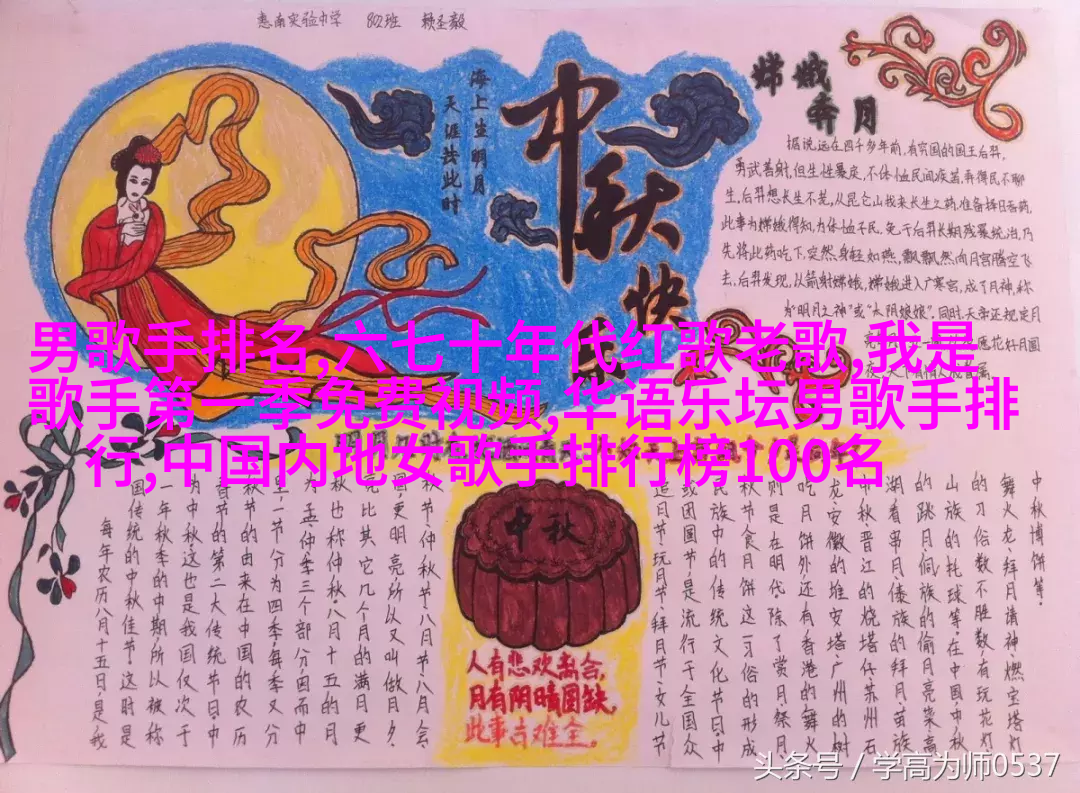 惠南实验中学 802班 赖圣毅
海上生明月
天涯共此时
中秋快
嫦娥
奔月
据说,远在四千多年前,有穷国的国王后羿,
勇武善射,但生性暴戾,不体恤民间疾苦,弄得民不聊
生,后羿想长生不老,从昆仑山找来长生之药,准备择日吞药,
此事为嫦娥得知,为体恤平民,免于后羿长期残暴统治,乃
先将此药吃下,突然身轻如燕,飘飘然向月宫腾空飞
去,后羿发现,以箭射嫦娥,嫦娥进入广寒宫,成了月神,称
为"明月之神"或"太阴娘娘".同时,天帝还规定月
男歌手排名,六七十年代红歌老歌,我是
歌手第一季免费视频,华语乐坛男歌手排
行,中国内地女歌手排行榜100名
每年农历八月十五日,是我
国传统的中秋佳节。这时是
一年秋季的中期,所以被称
为中秋。这也是我国仅次于
春节的第二大传统节日。中
秋节的由来在中国的农历
里,一节分为四季,每季又分
为孟、仲、季三个部分,因而中
秋也称仲秋。八月十五的月
亮比其它几个月的满月更
圆,更明亮,所以又叫做月夕、
秋节、仲秋节、八月节、八月会、
中秋
人有悲欢离合,
月有阴晴圆缺,
此事古难全。
追月节、玩月节、拜月节、女儿节
或团圆节,是流行于全国众
民族中的传统文化节日。中
秋节食月饼这一习俗的形成
则是在明代。除了赏月、祭月、
吃月饼外,还有香港的舞火
龙、安徽的堆宝塔、广州的树
中秋、晋江的烧塔仔、苏州石
湖看串月、傣族的拜月、苗族
的跳月、侗族的偷月亮菜、高
山族的托球等。在中国,中秋
的习俗数不胜数,有玩花灯、
舞火龙、拜月请神、燃宝塔灯、
中秋博饼等。
头条号 / 学高为师0537